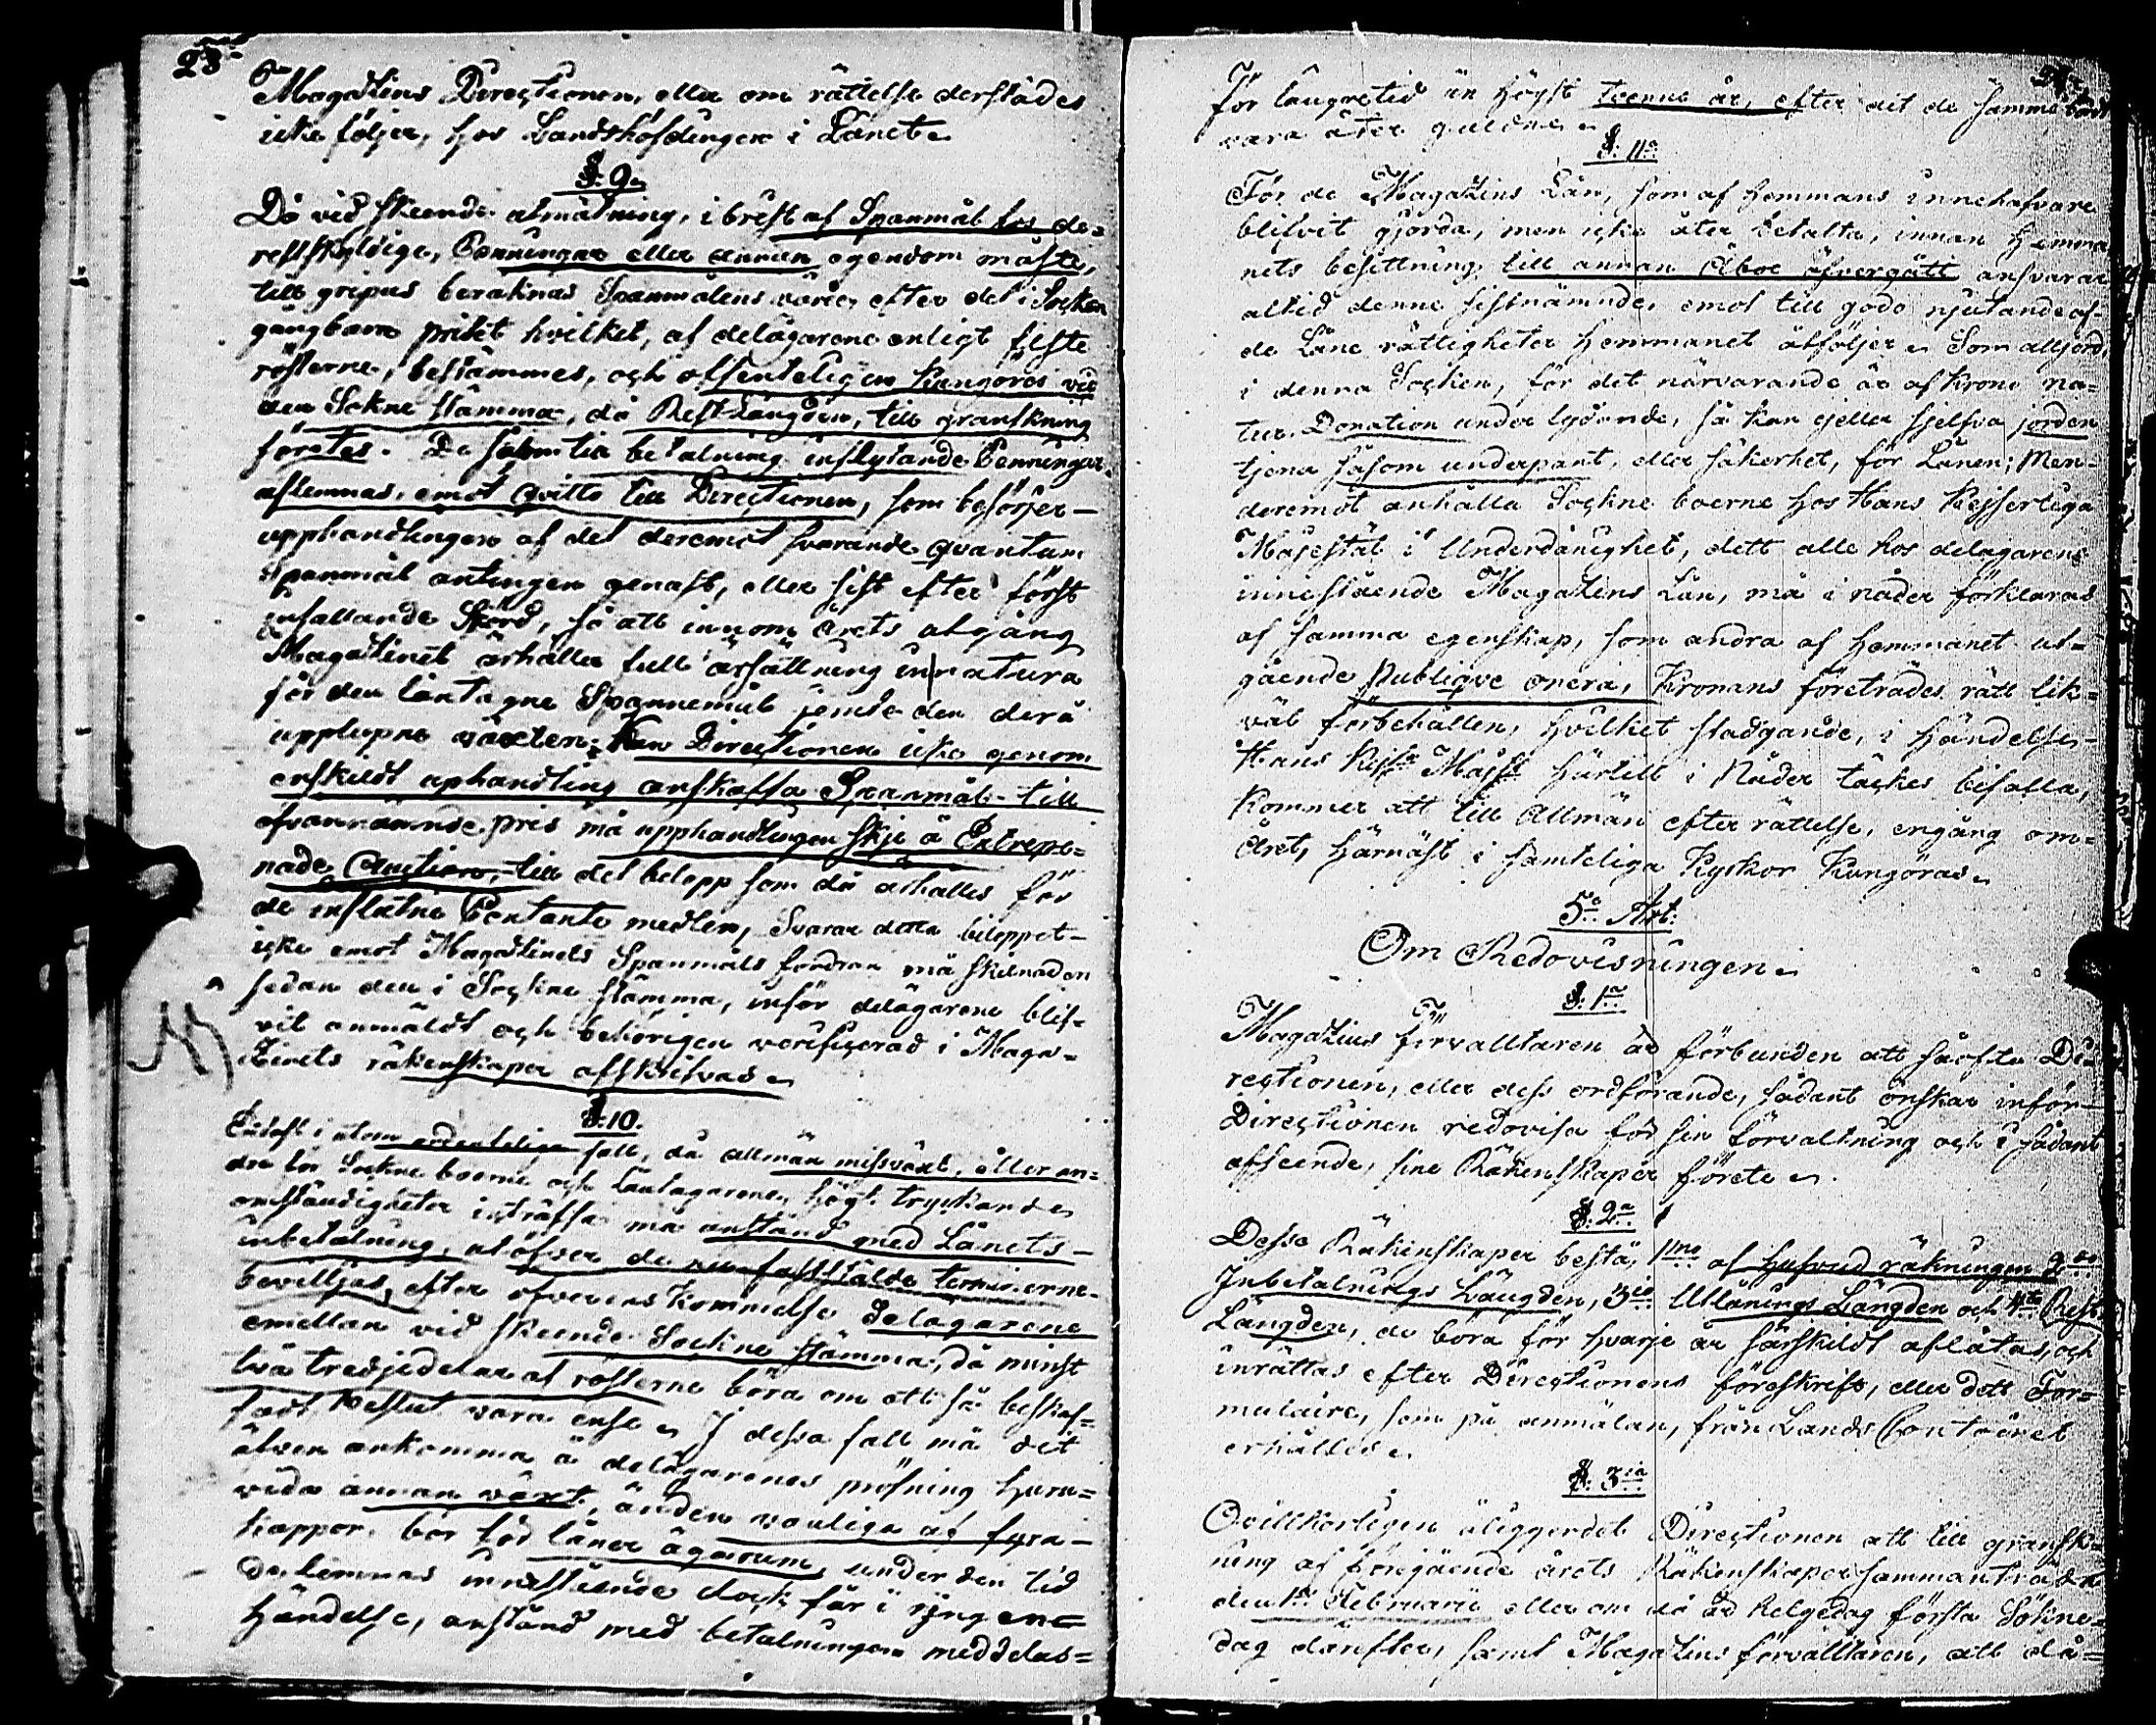 23
Magatzins Directionen, eller om rättelse derstädes
icke följer, hos Landshöfdingen i Länet.
§: 9.
Då vid skeende afmätning, i brist af Spanmål hos de-
restskyldige, Penningar eller annan egendom måste,
till gripas beräknas Spanmålens värde, efter det i Socken
gångbara priset hvilket, af delägarene enligt fleste
rösterne, bestämmes, och offenteligen kungöres vid
den Sokne stämma, då Restlängden, till granskning
företes. De som till betalning inflytande Penningar
aflemnas, emot qvitto till Directionen, som besörjer
upphandlingen af det deremot svarande qvantum
Spanmål antingen genast, eller sist efter först
infallande Skörd, så att innom årets utgång
Magatzinet erhåller full ersättning in natura
för den låntagne Spannemål jemte den derå
upplupne växten; Kan Directionen icke genom
enskildt uphandling anskaffa Spanmål till
ofvannämnde pris må upphandlingen skje å Entrepre-
nade Auction, till det belopp som då erhålles för
de influtne Contante medlen, Svarar detta beloppet
icke emot Magatzinets Spanmåls fordran må skilnaden
sedan den i Sockne stämma, inför delägarene blif-
vit anmäldt och behörigen verificerad i Maga-
tzinets räkenskaper afskrifvas.
§: 10.
Endast i utom ordentelige fall, då allmän missväxt, eller an-
dre för Sockne boerne och Låntagarene, högt tryckande
omständigheter inträffa må anstånd med Lånets
inbetalning, utöfver de nu fastställde terminerne
beviljas, efter öfverens kommelse delägarene
emellan vid skeende Sockne stämma, då minst
två tredjedelar af rösterne böra om ett så beskaf-
fadt beslut vara ense. I dessa fall må det
äfven ankomma å delägarenes pröfning huru-
vida annan växt, än den vanliga af fyra
kappor bör för lånen ägarum under den tid
de lemnas innestående dock får i ingen
händelse, anstånd med betalningen meddelas
för längre tid än högst tvenne år, efter det de samma bordt
vara åter guldne.
§: 11.
För de Magatzins Lån, som af Hemmans innehafvare
blifvit gjorda, men icke åter betalta, innan Hemma
nets besittning till annan Åboe öfvergått ansvarar
altid denne sistnämnde, emot till godo njutande af
de Låne rättigheter Hemmanet åtföljer. Som all jord,
i denna Socken, för det närvarande är af krono na-
tur Donation under lydande, så kan ej eller sjelfva jorden
tjena såsom underpant, eller säkerhet, för Lånen; Men
deremot anhålla Sockne boerne hos Hans Kejserliga
Majestät i Underdånighet, dett alle hos delägarene
innestående Magatzins Lån, må i nåder förklaras
af samma egenskap, som andra af Hemmanet ut-
gående Publique onera, Kronans företrädes rätt lik-
väl förbehållen, hvilket stadgande, i händelse
Hans Kejs: Maj:t härtill i Nåder täckes bifalla,
kommer att till Allmän efter rättelse, engång om
Året, härnäst i samteliga Kyrkor Kungöras.
5:e Art:
Om Redovisningen.
§: 1:a
Magatzins förvalltaren är förbunden att såofta Di-
rectionen, eller dess ordförande, sådant önskar inför
Directionen redovisa för sin förvaltning och i sådant
afseende, sine Räkenskaper förete.
§: 2:a
Desse Räkenskaper bestå, 1:mo af Hufvud räkningen 2:do
Inbetalnings Längden, 3:io Utlånings Längden och 4:to Rest
Längden, de böra för hvarje år särskildt aflåtas, och
inrättas efter Directionens föreskrift, eller dett For-
mulaire, som på anmälan, från Lands Contoiret
erhålles.
§: 3:ia
Ovillkorligen åliggerdet Directionen att till gransk-
ning af föregående årets Räkenskaper sammanträda
den 1:a Februarii eller om då är helgedag första Sökne-
dag därefter, samt Magatzins förvalltaren, att då